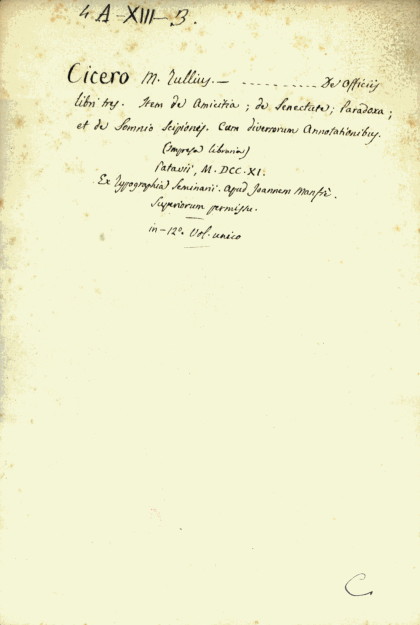 4 A-XIII-B.
Cicero M. Tullius. — ........... De Officiis
libri tres. Item de Amicitia; de Senectute; Paradoxa;
et de Somnio Scipionis. Cum diversorum Annotationibus.
(Impresa libraria)
Patavii, M.DCC.XI.
Ex Typographia Seminarii. Apud Joannem Manfrè.
Superiorum permissu.
in-12º. Vol. unico
C